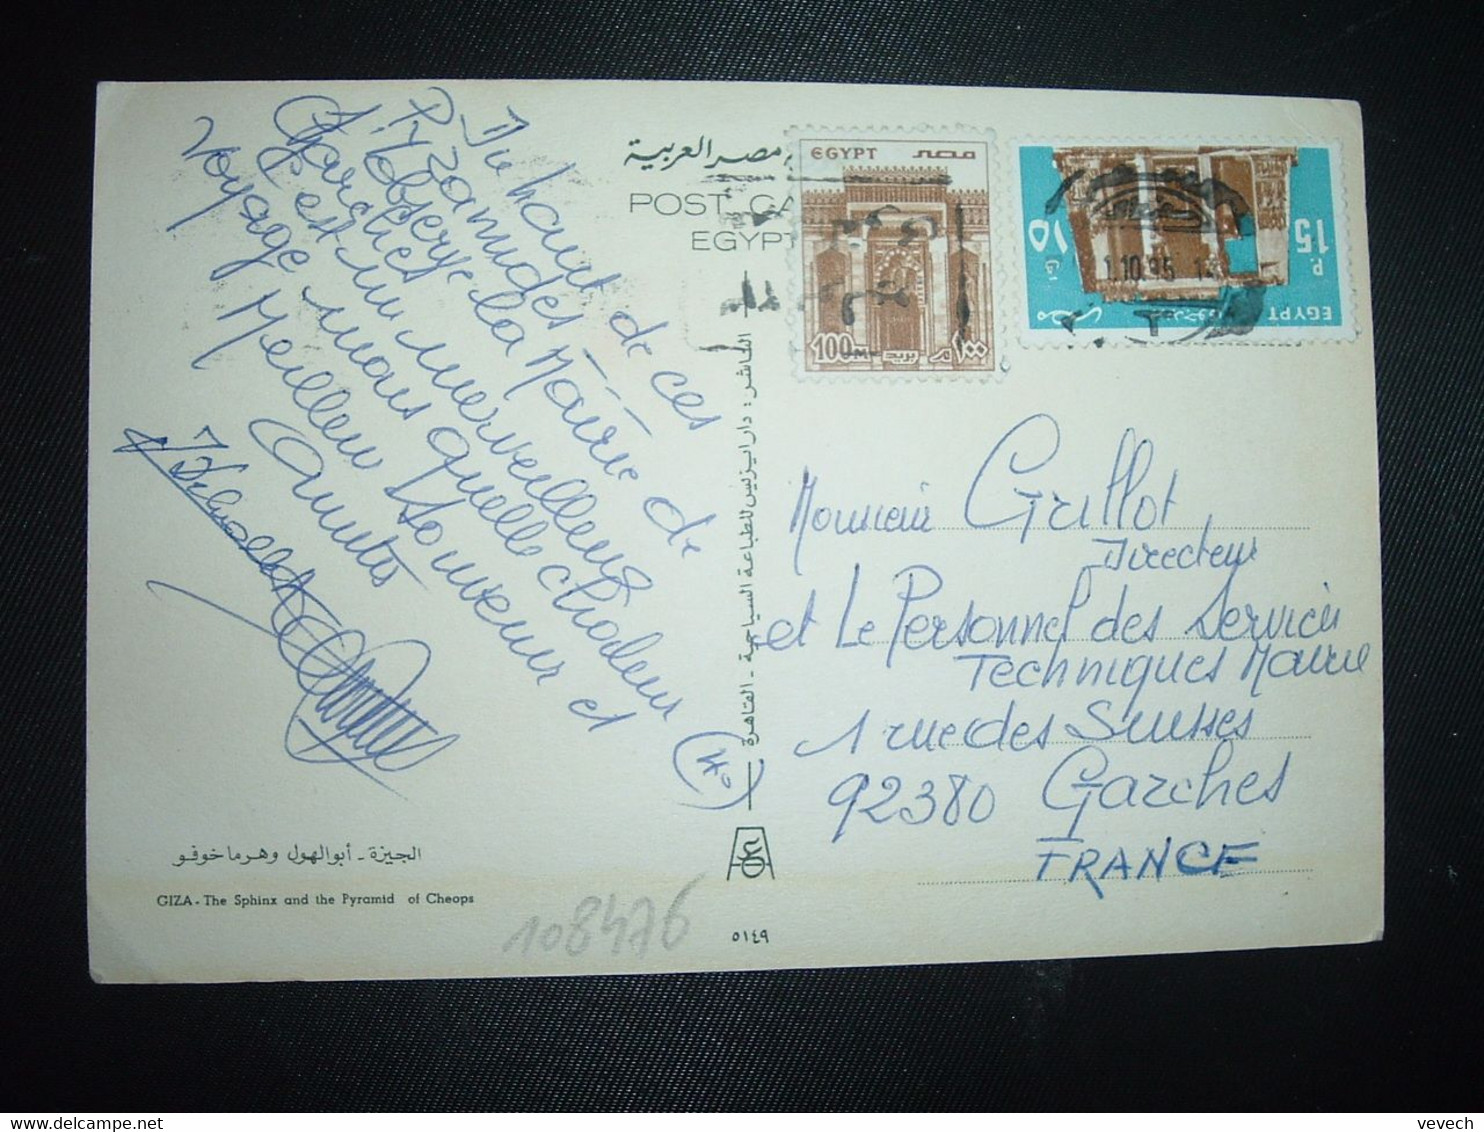 Du haut de ces
Pyramides
J'observe la Mairie de
Garches
C'est un merveilleux
voyage mais quelle chaleur (40°)
Meilleur souvenir et
amitiés
جمهورية مصر العربية
POST CA
EGYPT
EGYPT مصر
100 M بريد ١٠٠ م
P. 15
١٥ ق
EGYPT مصر
1.10.85
Monsieur Grillot
Directeur
et Le Personnel des Services
Techniques Mairie
1 rue des Suisses
92380 Garches
FRANCE
الناشر: دار ايزيس للطباعة السياحية - القاهرة
الجيزة - أبو الهول وهرم اخوفو
GIZA - The Sphinx and the Pyramid of Cheops
108476
٥١٤٩
vevech